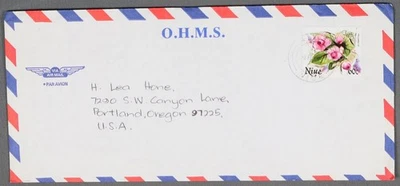 O.H.M.S.
VIA
AIR MAIL
PAR AVION
Niue
60c
H. Lea Hone,
7220 S.W Canyon Lane,
Portland, Oregon 97225,
U.S.A.